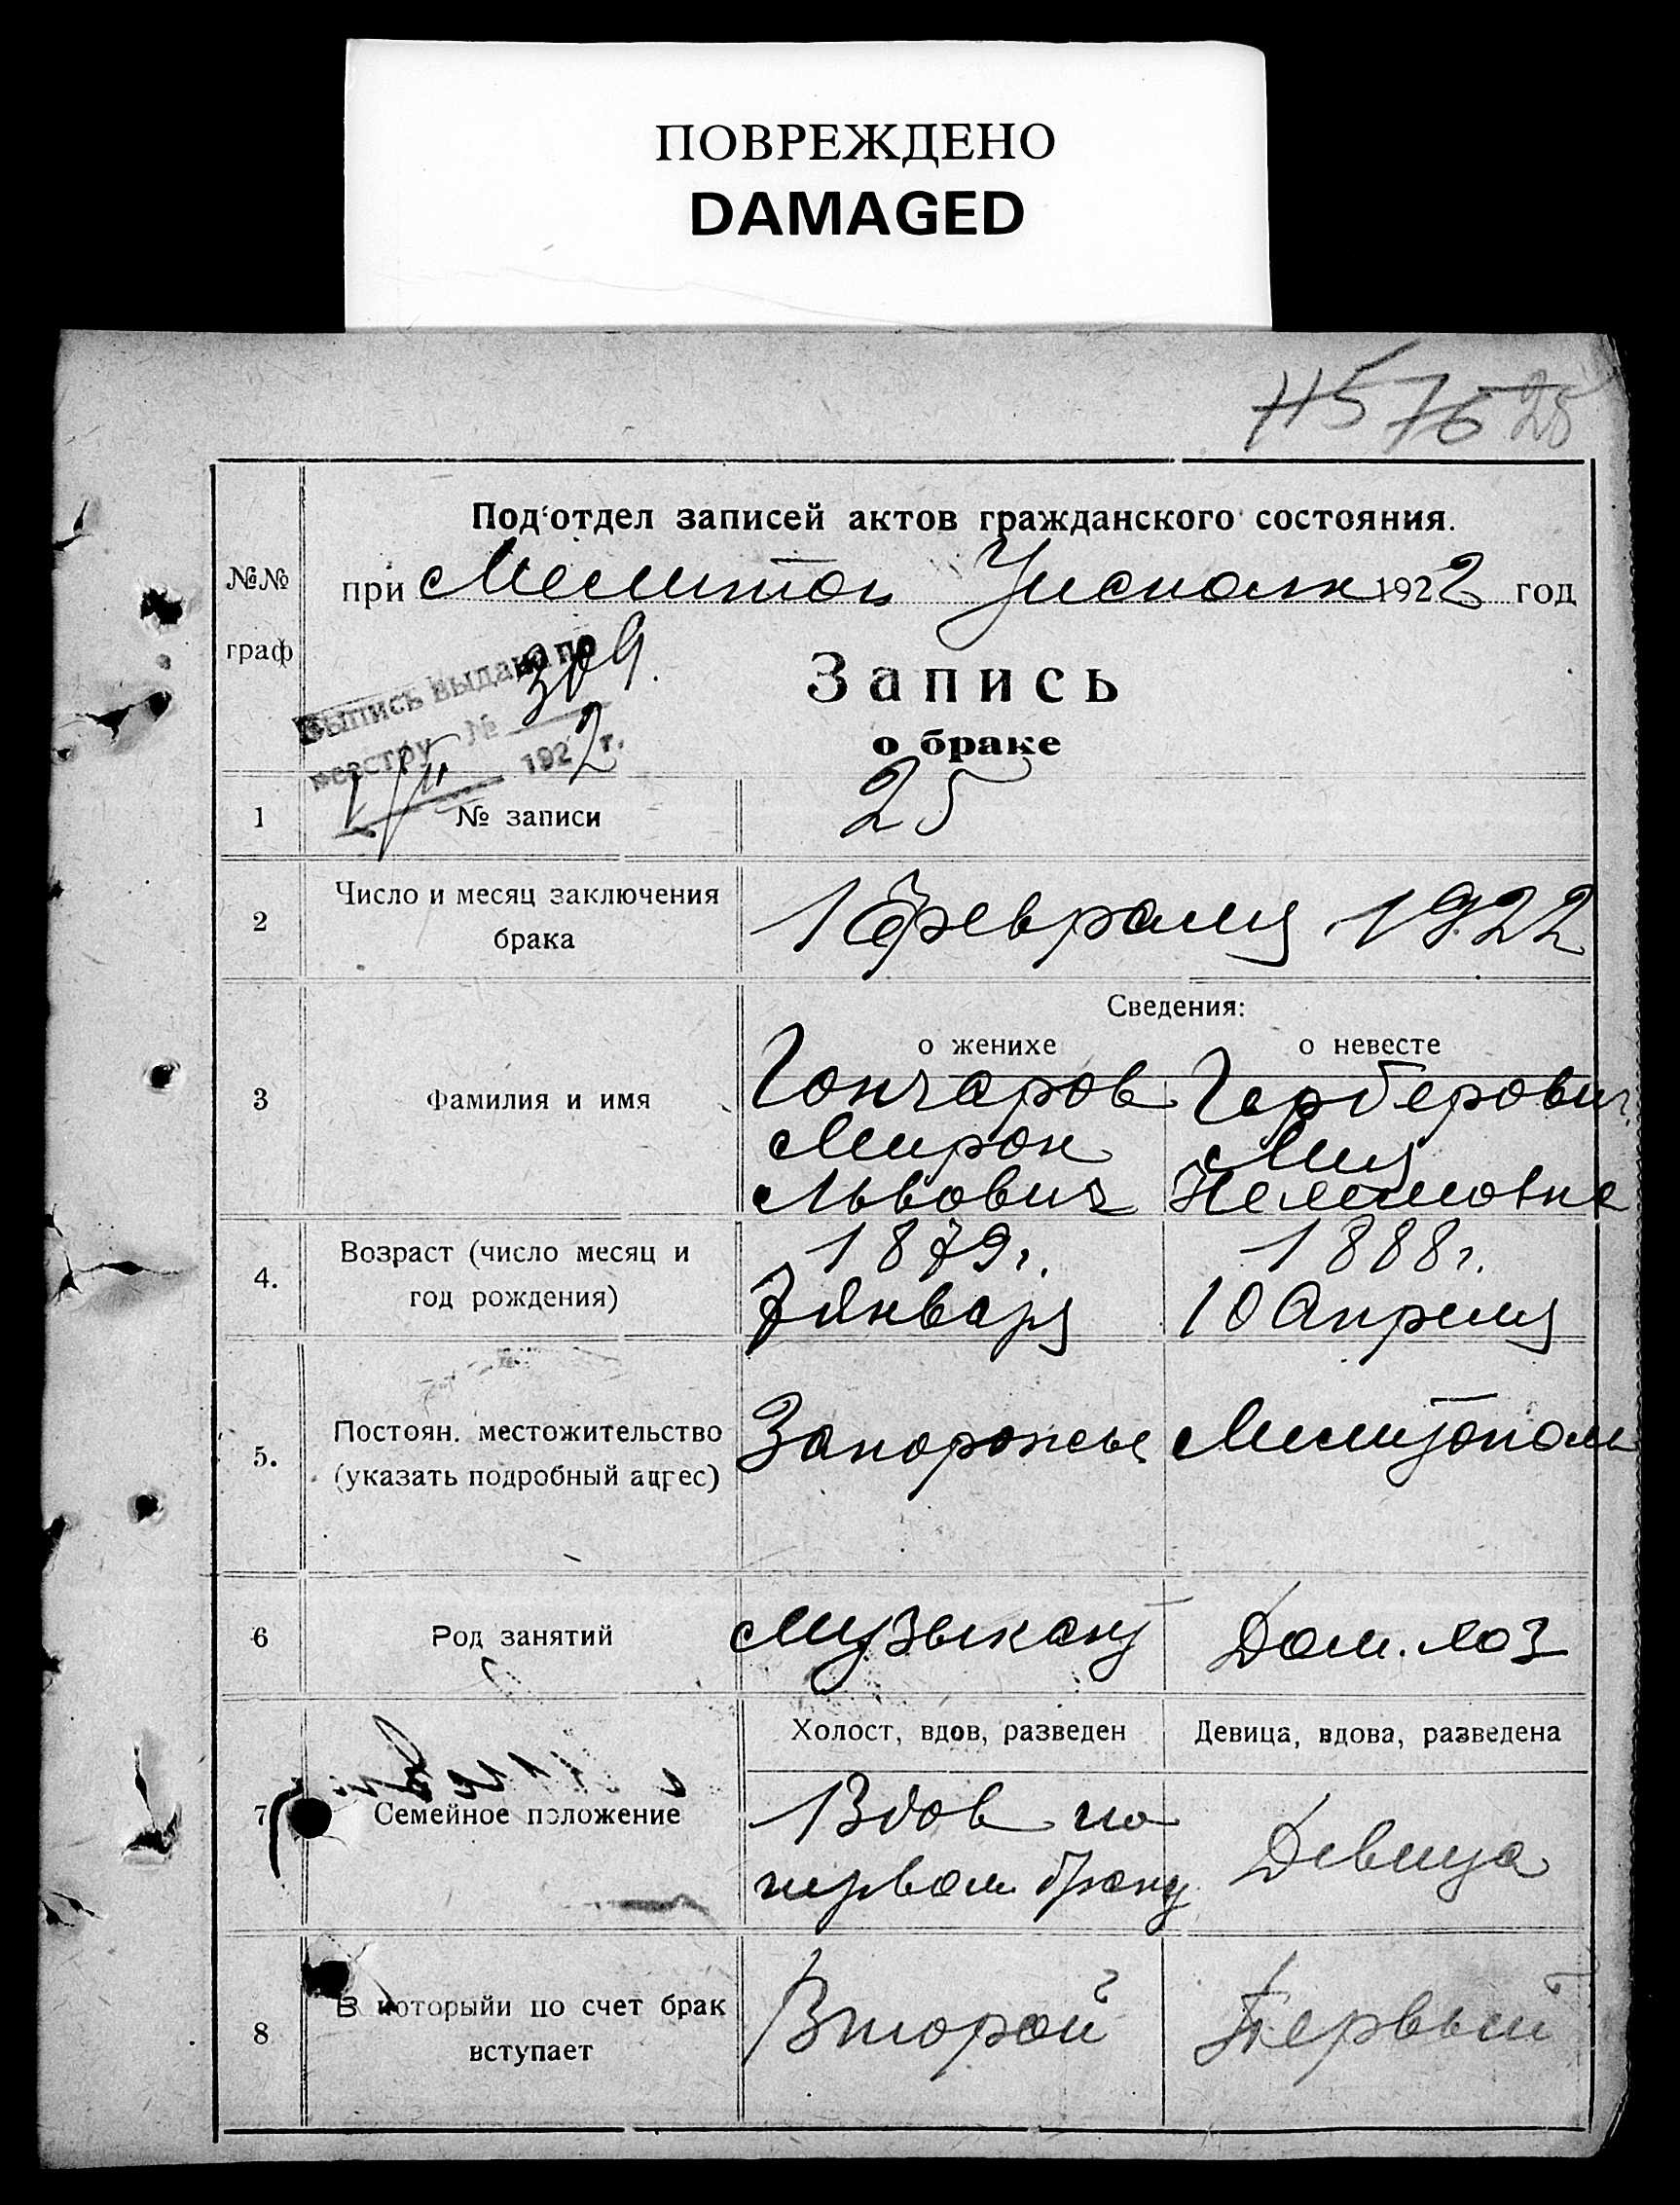 ПОВРЕЖДЕНО
DAMAGED
25
Под‘отдел записей актов гражданского состояния.
№№
граф
при Мелитоп Усполк 1922 год
Выпись выдана по
реестру № 309.
1922 г.
Запись
о браке
1 № записи 25
2 Число и месяц заключения
брака
1 Февраля 1922
Сведения:
о женихе о невесте
3 Фамилия и имя
Гончаров Герберович
Мирон
Львович
4. Возраст (число месяц и
год рождения)
1879г. 1888г.
7 Января 10 Апреля
5. Постоян. местожительство
(указать подробный адрес)
Запорожье Мелитополь
6 Род занятий Музыкант Дом. хоз
Холост, вдов, разведен Девица, вдова, разведена
7 Семейное положение
Вдов по
первом браку Девица
8 В которыйи по счет брак
вступает
Второй Первый